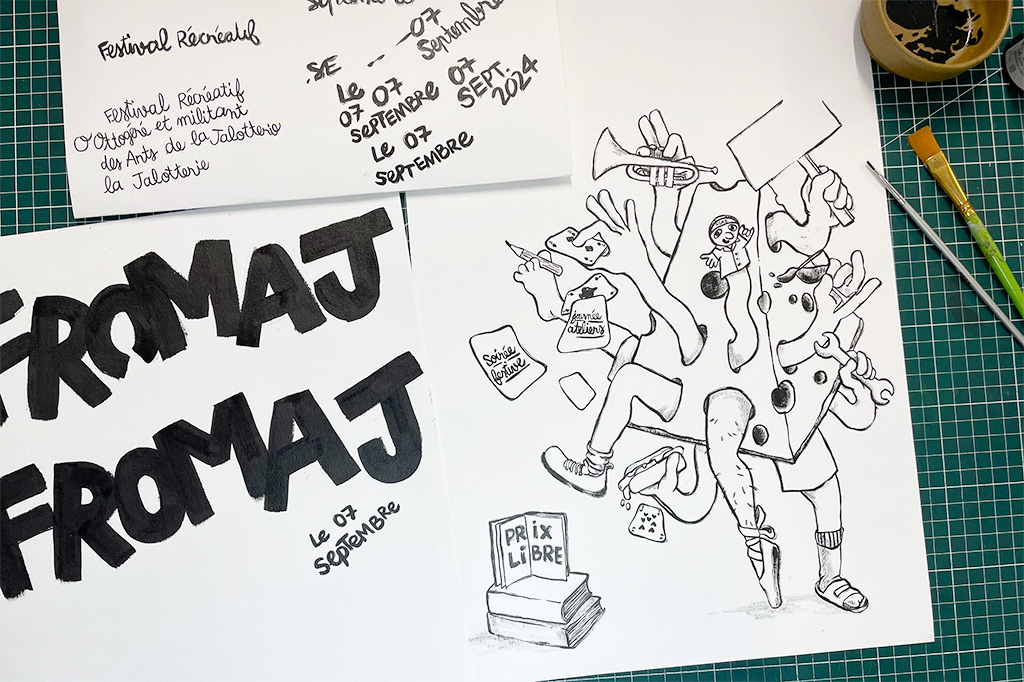 Festival Récréatif
Festival Récréatif
Ottogéré et militant
des Arts de la Jalotterie
la Jalotterie
septembre
07
Septembre
SE
Le
07 07
SEPTEMBRE
07
SEPT.
2024
Le 07
SEPTEMBRE
FROMAJ
FROMAJ
Le 07
SEPTEMBRE
journée
ateliers
soirée
festive
PRIX
LIBRE